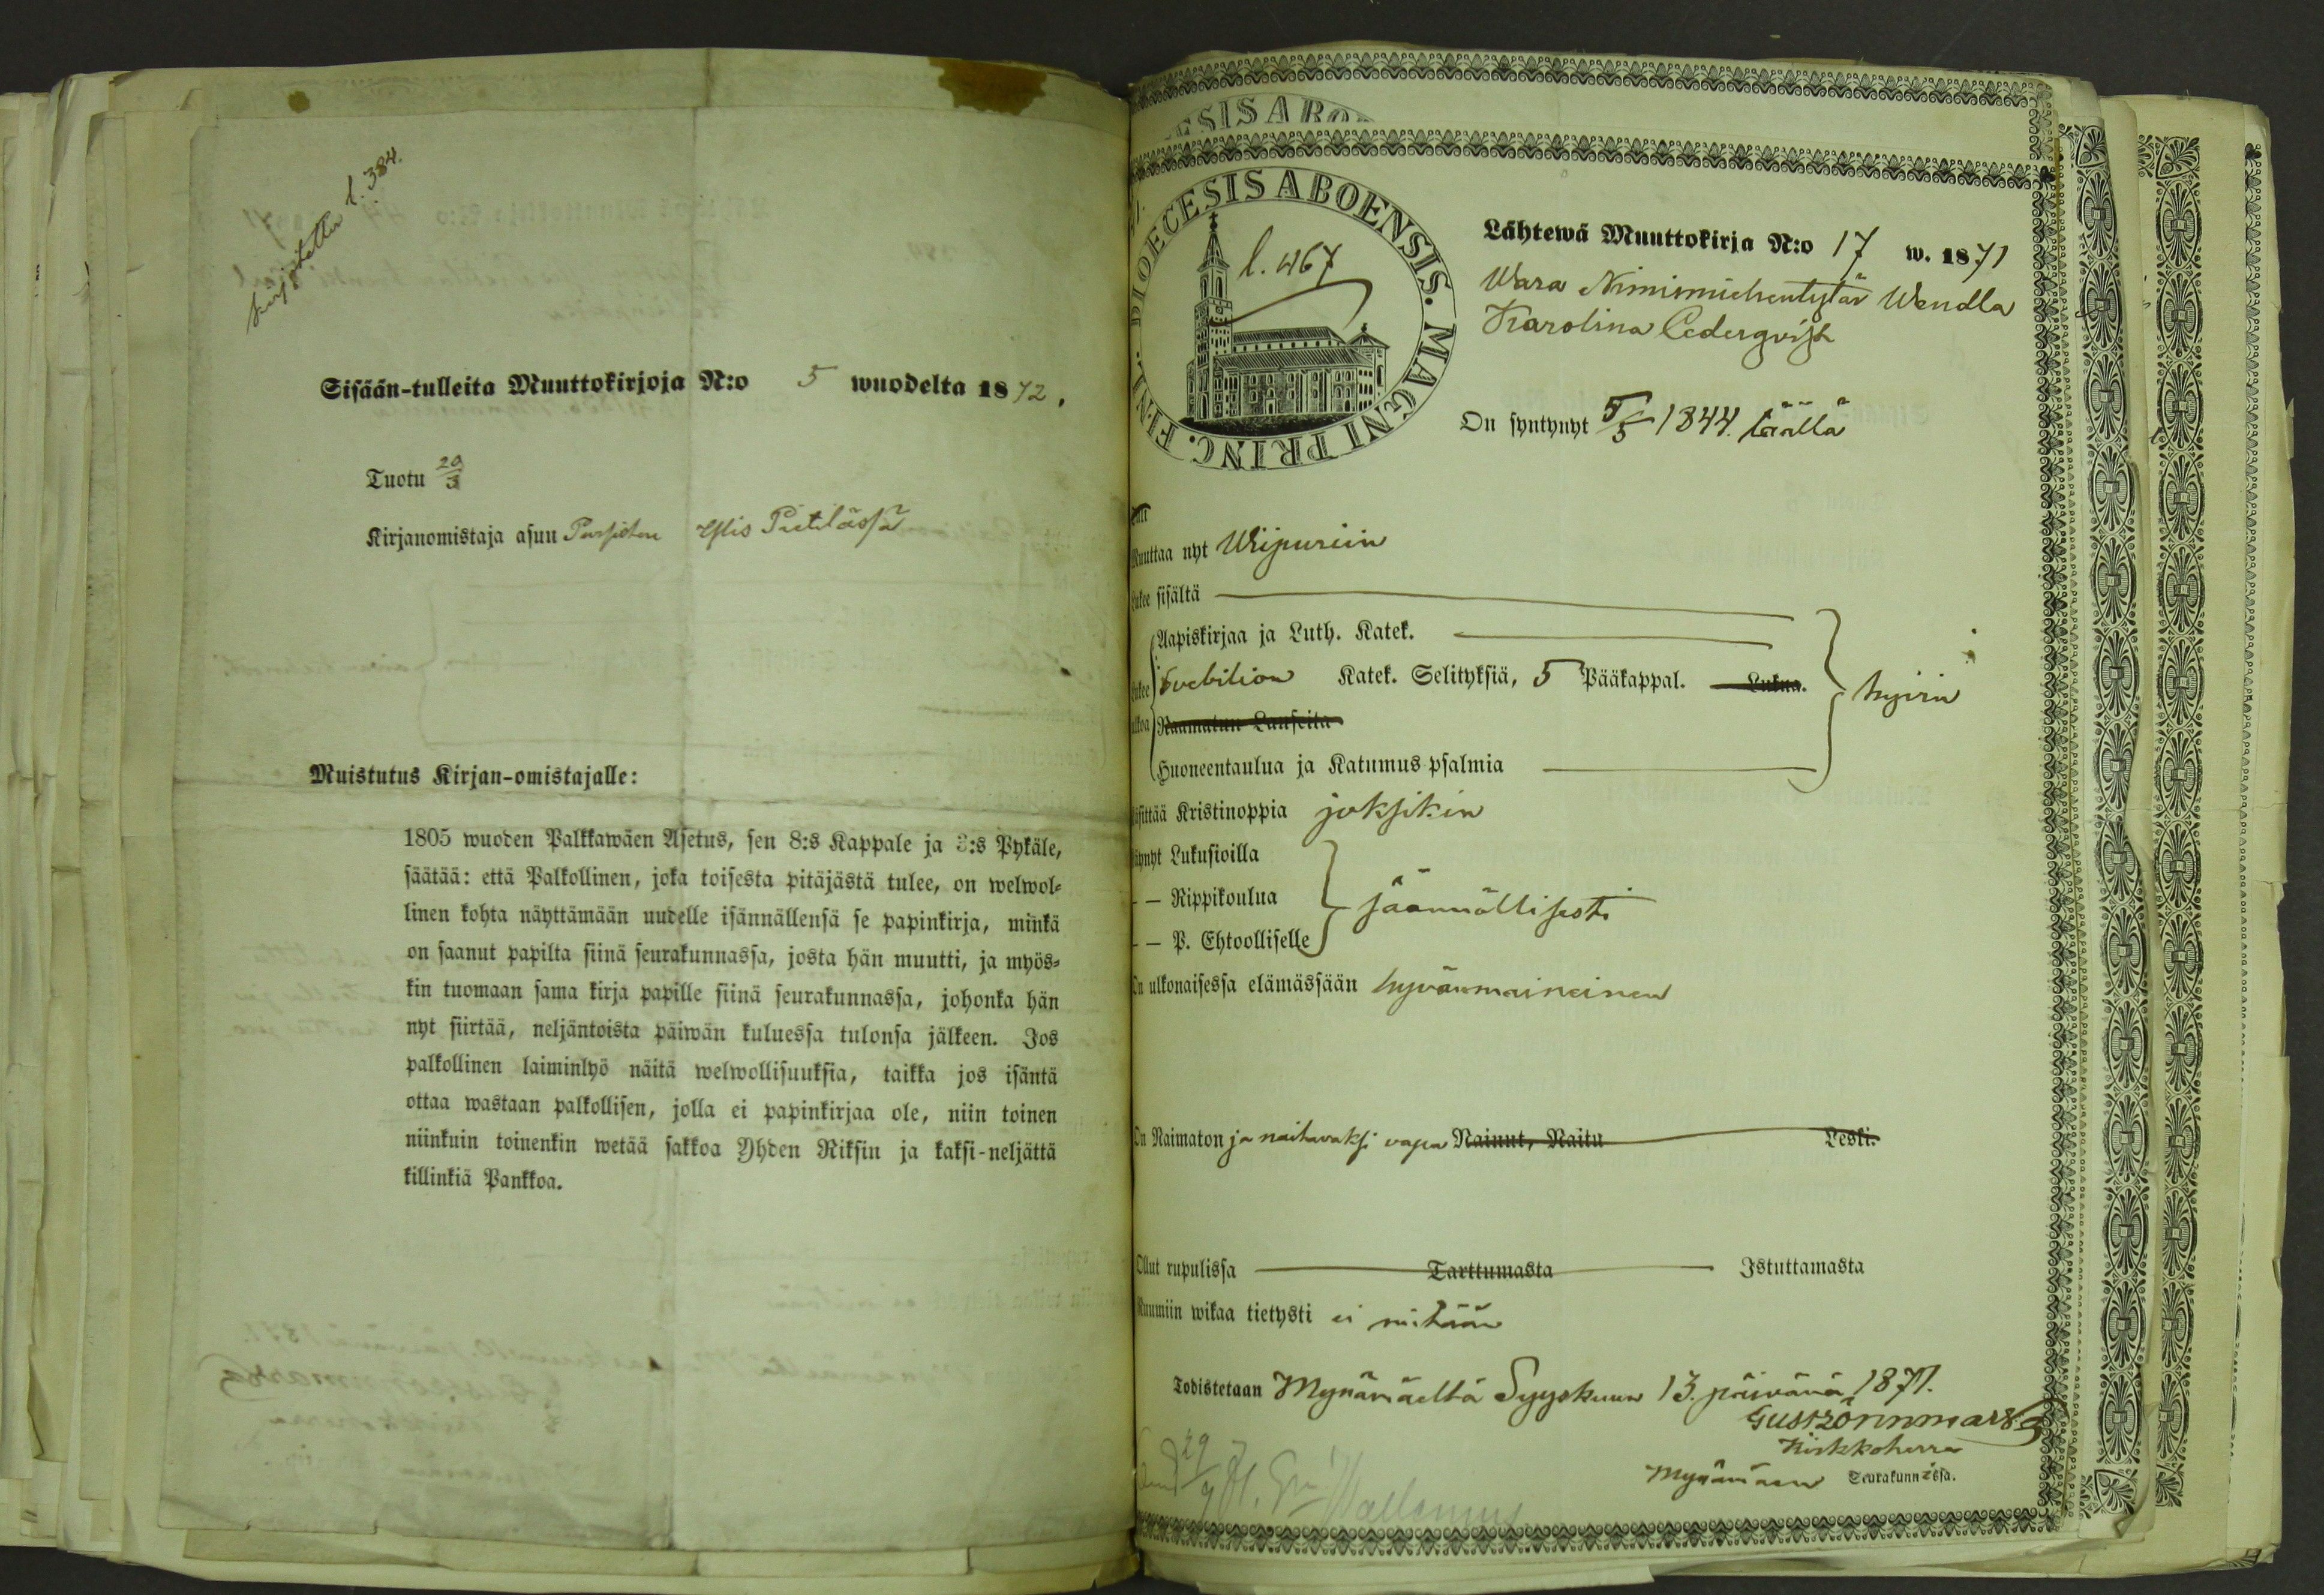 Kirjoitettu l. 384.
Sisään-tulleita Muuttokirjoja N:o 5 wuodelta 1872.
Tuotu 20/3
Kirjanomistaja asuu Ylis Pietilässä
Muistutus Kirjan-omistajalle:
1805 wuoden Palkkawäen Asetus, sen 8:s Kappale ja 3:s Pykäle,
säätää: että Palkollinen, joka toisesta pitäjästä tulee, on welwol-
linen kohta näyttämään uudelle isännällensä se papinkirja, minkä
on saanut papilta siinä seurakunnassa, josta hän muutti, ja myös-
kin tuomaan sama kirja papille siinä seurakunnassa, johonka hän
nyt siirtää, neljäntoista päiwän kuluessa tulonsa jälkeen. Jos
palkollinen laiminlyö näitä welwollisuuksia, taikka jos isäntä
ottaa wastaan palkollisen, jolla ei papinkirjaa ole, niin toinen
niinkuin toinenkin wetää sakkoa Yhden Riksin ja kaksi-neljättä
killinkiä Pankkoa.
ESIS ABO
DIOECESIS ABOENSIS. MAGNI PRINC. FINL.
l. 467
Lähtewä Muuttokirja N:o 17 w. 1871
Wara Nimismiehentytär Wendla
Karolina Cederqvist
On syntynyt 5/5 1844. täällä
Muuttaa nyt Wiipuriin
Lukee sisältä
Aapiskirjaa ja Luth. Katek.
Svebilion Katek. Selityksiä, 5 Pääkappal. Lukua.
Raamatun Lauseita
Huoneentaulua ja Katumus-psalmia
hyvin
Käsittää Kristinoppia joksikin
Käynyt Lukusioilla
— Rippikoulua
— P. Ehtoolliselle
säännöllisesti
On ulkonaisessa elämässään hyvänmaineinen
On Naimaton ja naitavaksi vapa Nainut, Naitu Leski.
Ollut rupulissa Tarttumasta Istuttamasta
Ruumiin wikaa tietysti ei mitään
Todistetaan Mynämäeltä Syyskuun 13. päivänä 1871.
Kirkkoherra
Mynämäen Seurakunnassa.
29/9 71.